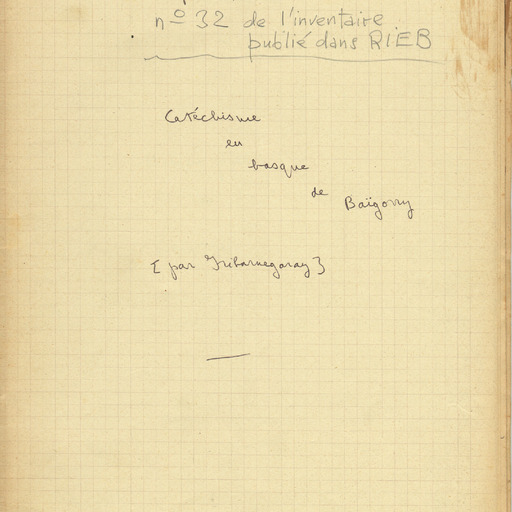 nº 32 de l'inventaire
publié dans RIEB
Catéchisme
en
basque
de
Baïgorry
[ par Iribarnegaray ]